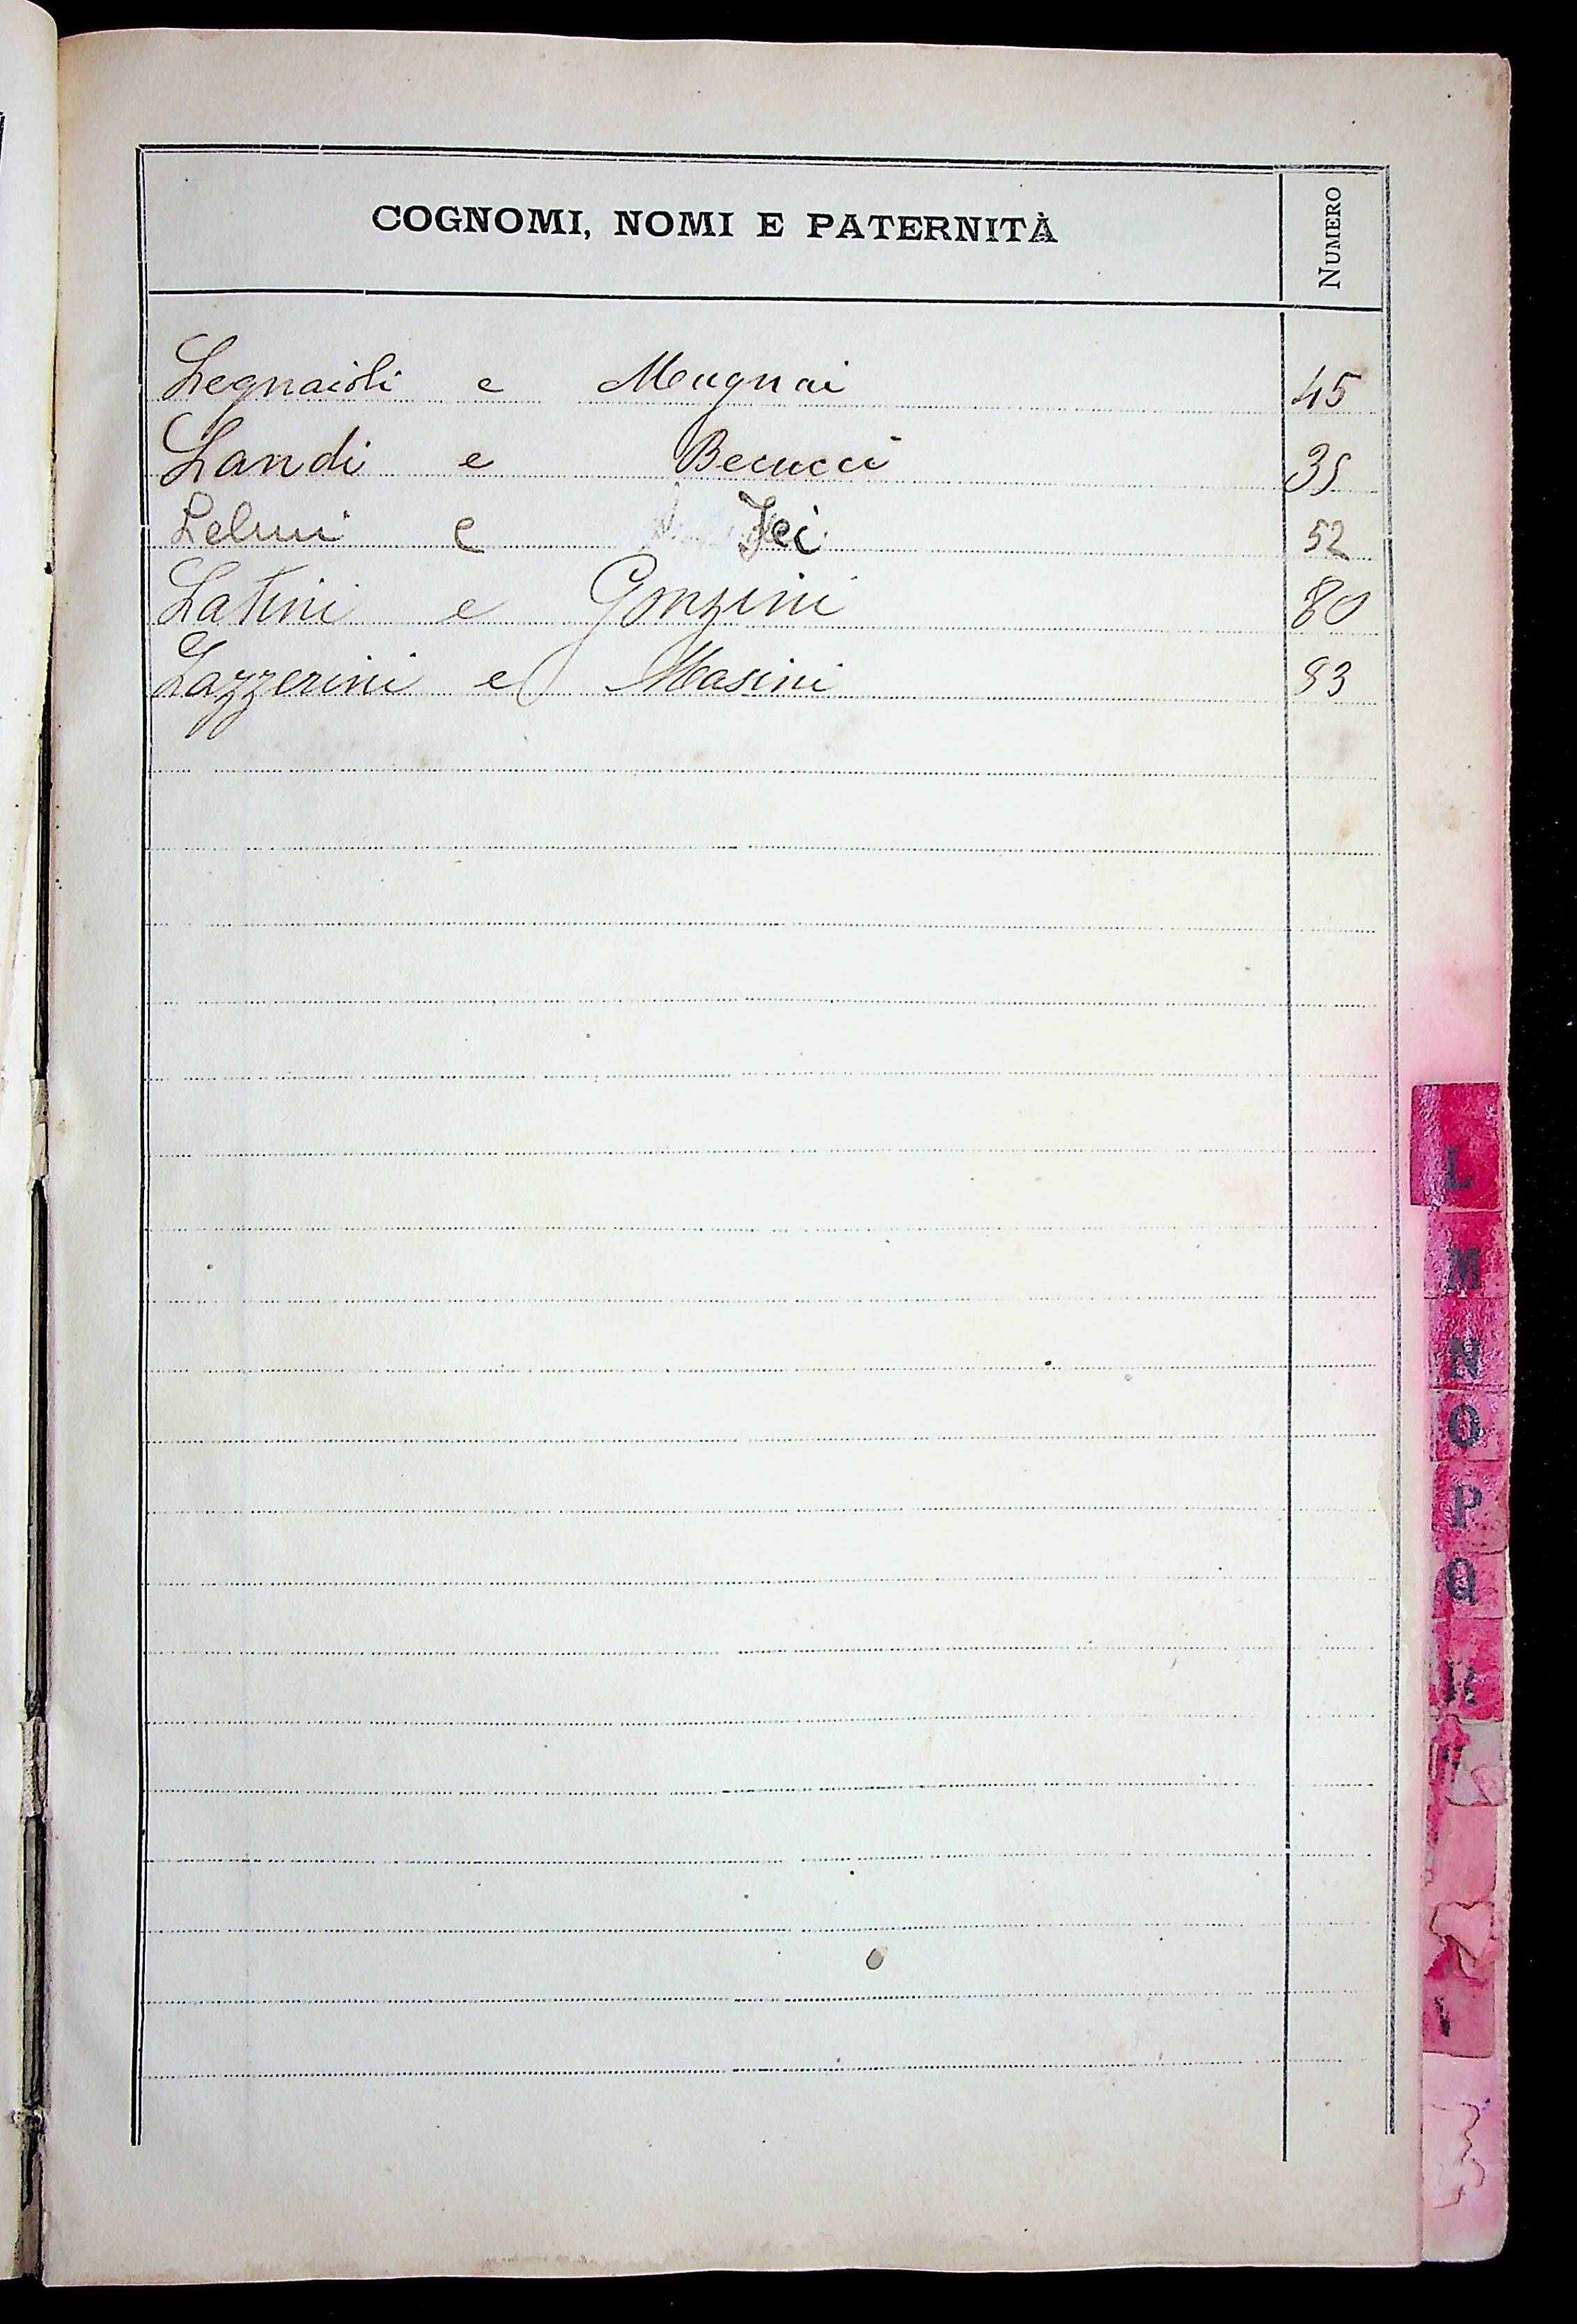 COGNOMI, NOMI E PATERNITÀ NUMERO
Legnaioli e Mugnai 45
Landi e Becucci 35
Lelmi e Fei 52
Latini e Gonzini 80
Lazzerini e Masini 93
L
M
N
O
P
Q
R